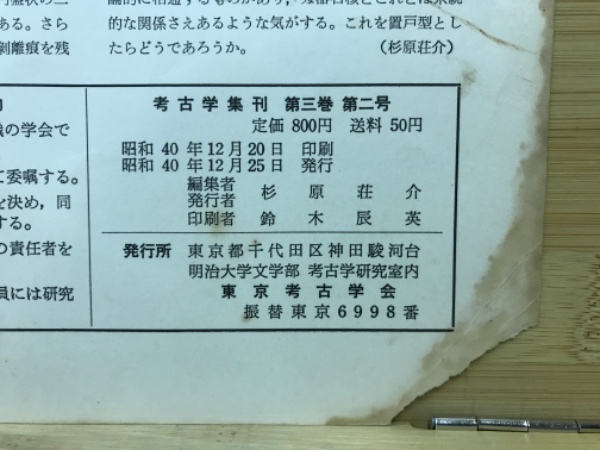 れる。さら
剝離痕を残
的な関係さえあるような気がする。これを置戸型とし
たらどうであろうか。　　　　（杉原荘介）
の学会で
て委嘱する。
を決め，同
する。
の責任者を
員には研究
考古学集刊　第三巻 第二号
定価 800円　送料 50円
昭和 40 年 12 月 20 日　印刷
昭和 40 年 12 月 25 日　発行
編集者
発行者　杉原荘介
印刷者　鈴木辰英
発行所　東京都千代田区神田駿河台
明治大学文学部 考古学研究室内
東京考古学会
振替東京 6 9 9 8 番